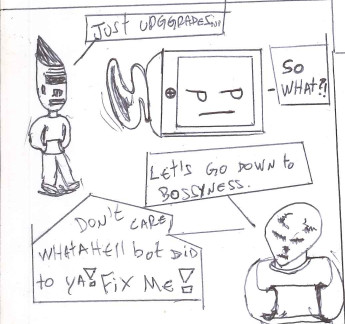 JUST UDGGRADES...
SO
WHAT?!
LET'S GO DOWN to
BOSSYNESS.
DON't CARE
WHATAHEll bot DiD
to YA! FiX ME!